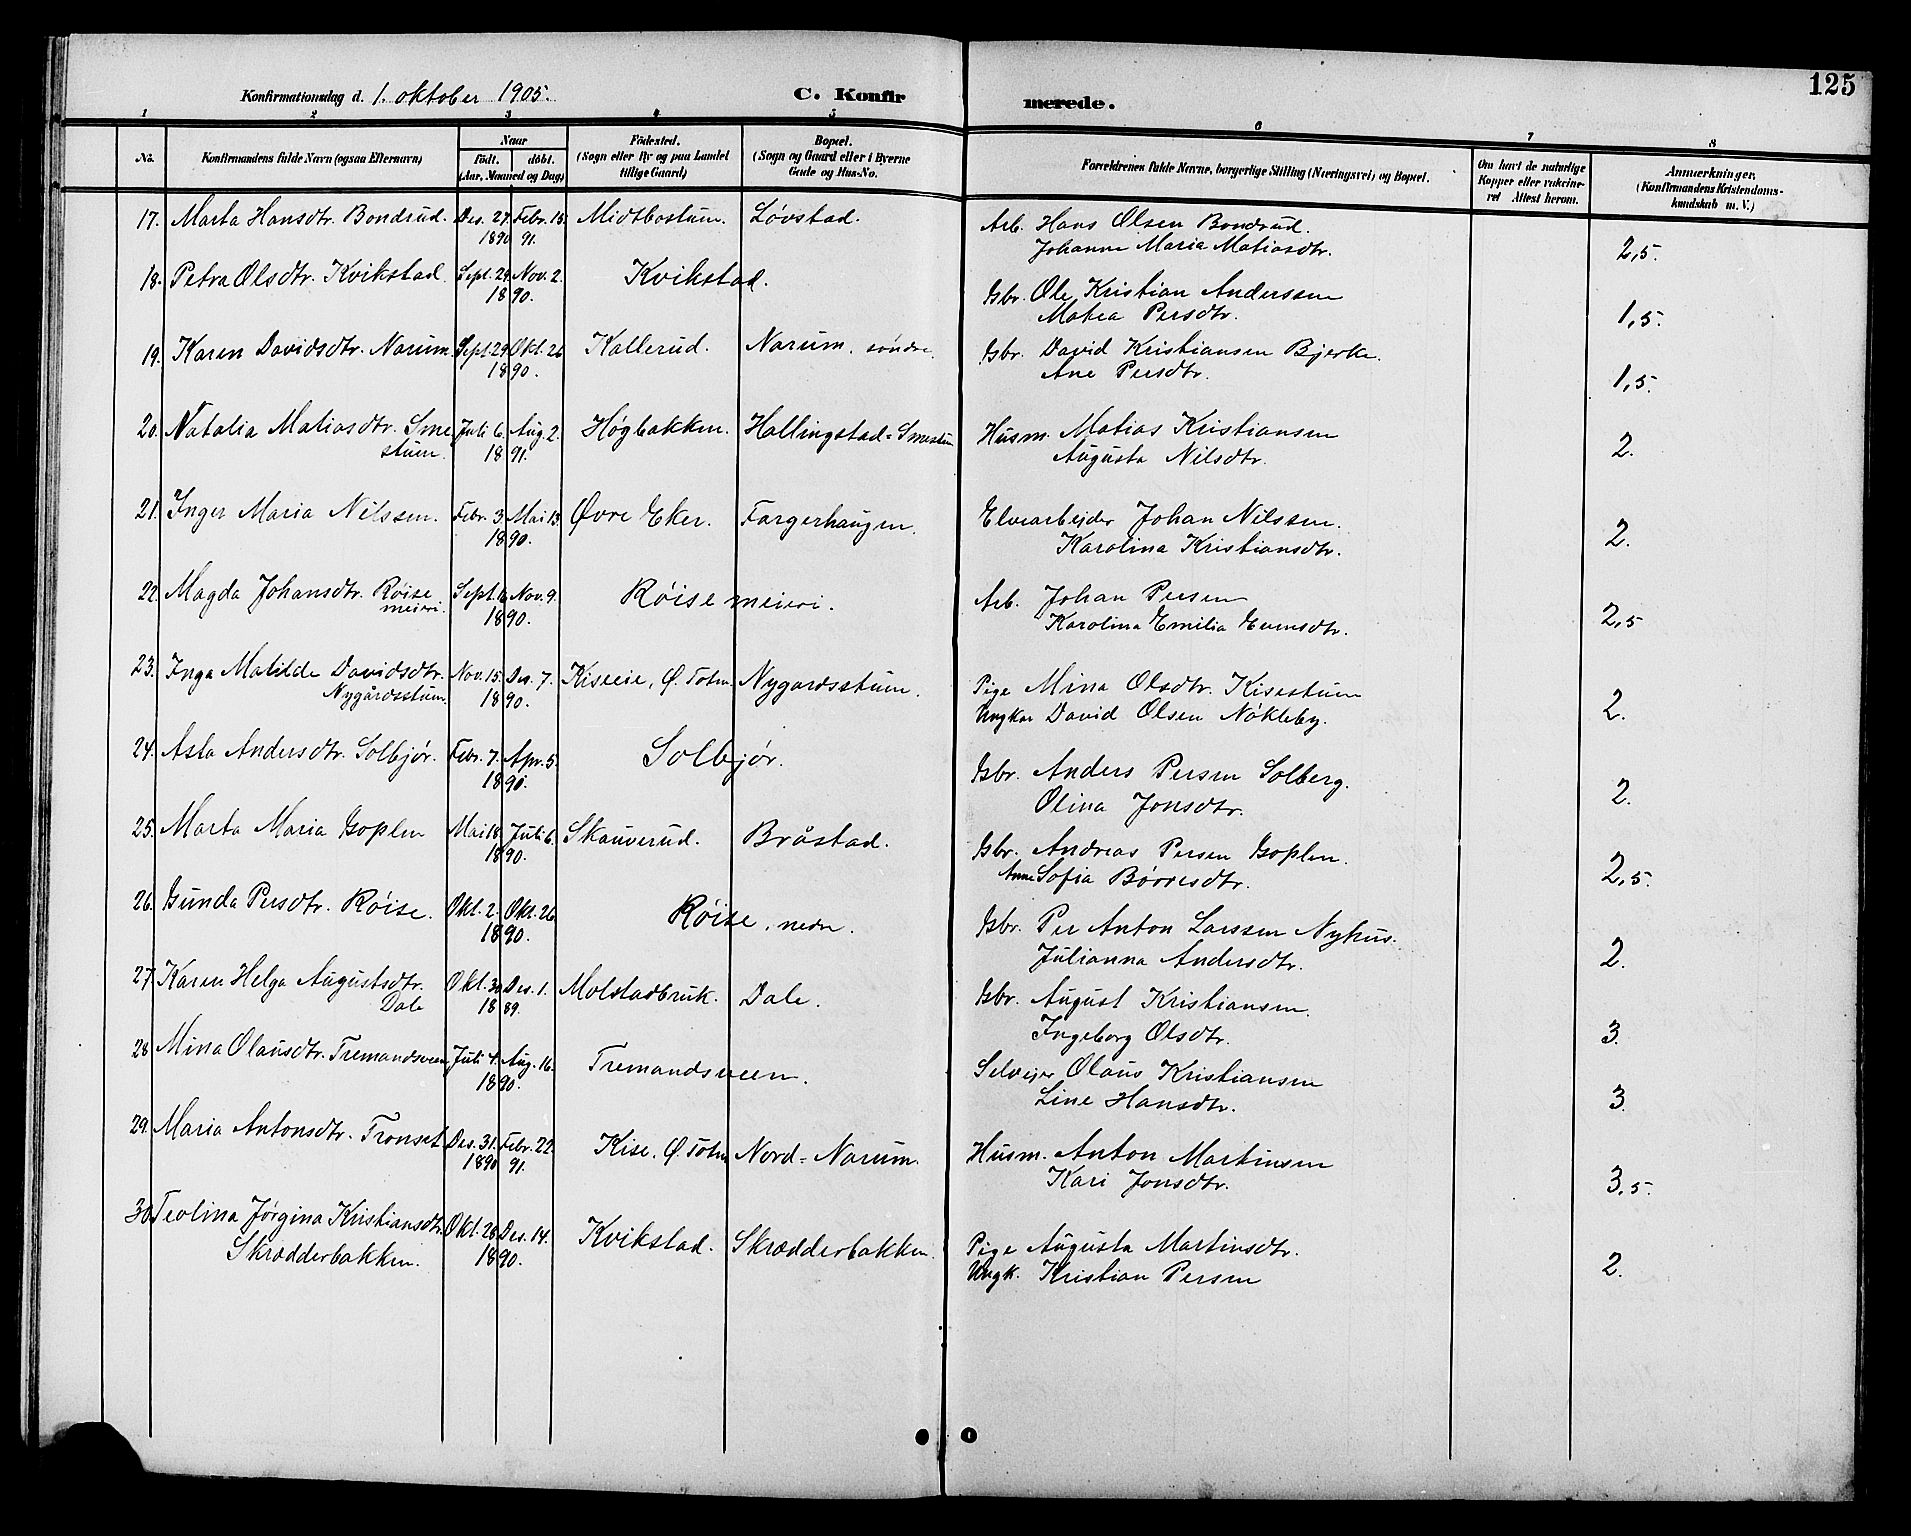 125
Konfirmationsdag d. 1. oktober 1905. C. Konfirmerede.
1 2 3 4 5 6 7 8
No. Konfirmandens fulde Navn (ogsaa Efternavn) Naar födt. döbt. (Aar, Maaned og Dag) Födested. (Sogn eller By og paa Landet tillige Gaard) Bopæl. (Sogn og Gaard eller i Byerne Gade og Hus-No. Forældrenes fulde Navne, borgerlige Stilling (Næringsvei) og Bopæl. Om havt de naturlige Kopper eller vakcineret Attest herom. Anmærkninger, (Konfirmandens Kristendomskundskab m. V.)
17. Marta Hansdtr. Bondrud. Des. 27. Febr. 15. Midtbostuen. Løvstad. Arb. Hans Olsen Bondrud.
1890 91. Johanne Maria Matiasdtr. 2,5.
18. Petra Olsdtr. Kvikstad. Sept. 29. Nov. 2. Kvikstad. Gbr. Ole Kristian Anderssen
1890. Matea Persdtr. 1,5.
19. Karen Davidsdtr. Narum. Sept. 29. Okt. 26 Kallerud. Narum, søndre. Gbr. David Kristiansen Bjerke.
1890. Ane Persdtr. 1,5.
20. Natalia Matiasdtr. Sme Juli 6. Aug. 2. Høgbakken. Hallingstad=Smestuen Husm. Matias Kristiansen
stuen. 1891. Augusta Nilsdtr. 2.
21. Inger Maria Nilssen. Febr. 3. Mai 13. Øvre Eker. Fargerhaugen. Elvearbejder Johan Nilssen.
1890. Karolina Kristiansdtr. 2.
22. Magda Johansdtr. Røise Sept. 16 Nov. 9. Røise meieri. Arb. Johan Persen
meieri. 1890. Karolina Emilia Evensdtr. 2,5
23. Inga Matilde Davidsdtr. Nov. 15. Des. 7. Kiseeie, Ø. Totn. Nygardsstuen. Pige Mina Olsdtr. Kisestuen
Nygårdsstuen. 1890. Ungkar David Olsen Nøkleby. 2.
24. Asta Andersdtr. Solbjør. Febr. 7. Apr. 5. Solbjør. Gbr. Anders Persen Solberg.
1890. Olina Jonsdtr. 2.
25. Marta Maria Goplen Mai 18. Juli 6. Skauverud. Bråstad. Gbr. Andreas Persen Goplen.
1890. Anne Sofia Børresdtr. 2,5.
26. Gunda Persdtr. Røise. Okt. 2. Okt. 26 Røise, nedre. Gbr. Per Anton Larssen Nyhus.
1890. Julianna Andersdtr. 2.
27. Karen Helga Augustsdtr. Okt. 30 Des. 1. Molstadbruk. Dale. Gbr. August Kristiansen.
Dale 1889. Ingeborg Olsdtr. 3.
28 Mina Olausdtr. Tremandsveen Juli 4. Aug. 16. Tremandsveen. Selvejer Olaus Kristiansen
1890. Line Hansdtr. 3.
29. Maria Antonsdtr. Tronset Des. 31. Febr. 22. Kise, Ø. Totn Nord=Narum. Husm. Anton Martinsen
1890 91. Kari Jonsdtr. 3,5.
30. Teolina Jørgina Kristiansdtr. Okt. 28 Des. 14. Kvikstad. Skrædderbakken. Pige Augusta Martinsdtr.
Skrædderbakken. 1890. Ungk. Kristian Persen 2.